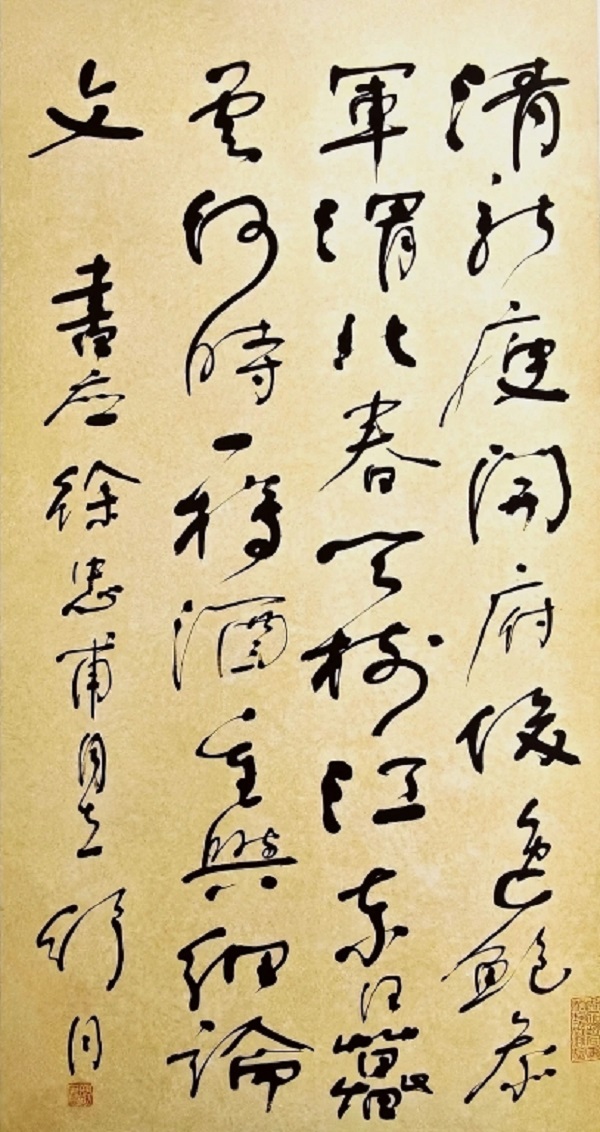 清新庾開府俊逸鮑參
軍渭北春天樹江東日
雲何時一樽酒重與細論
文 書应徐忠甫同志 舒同